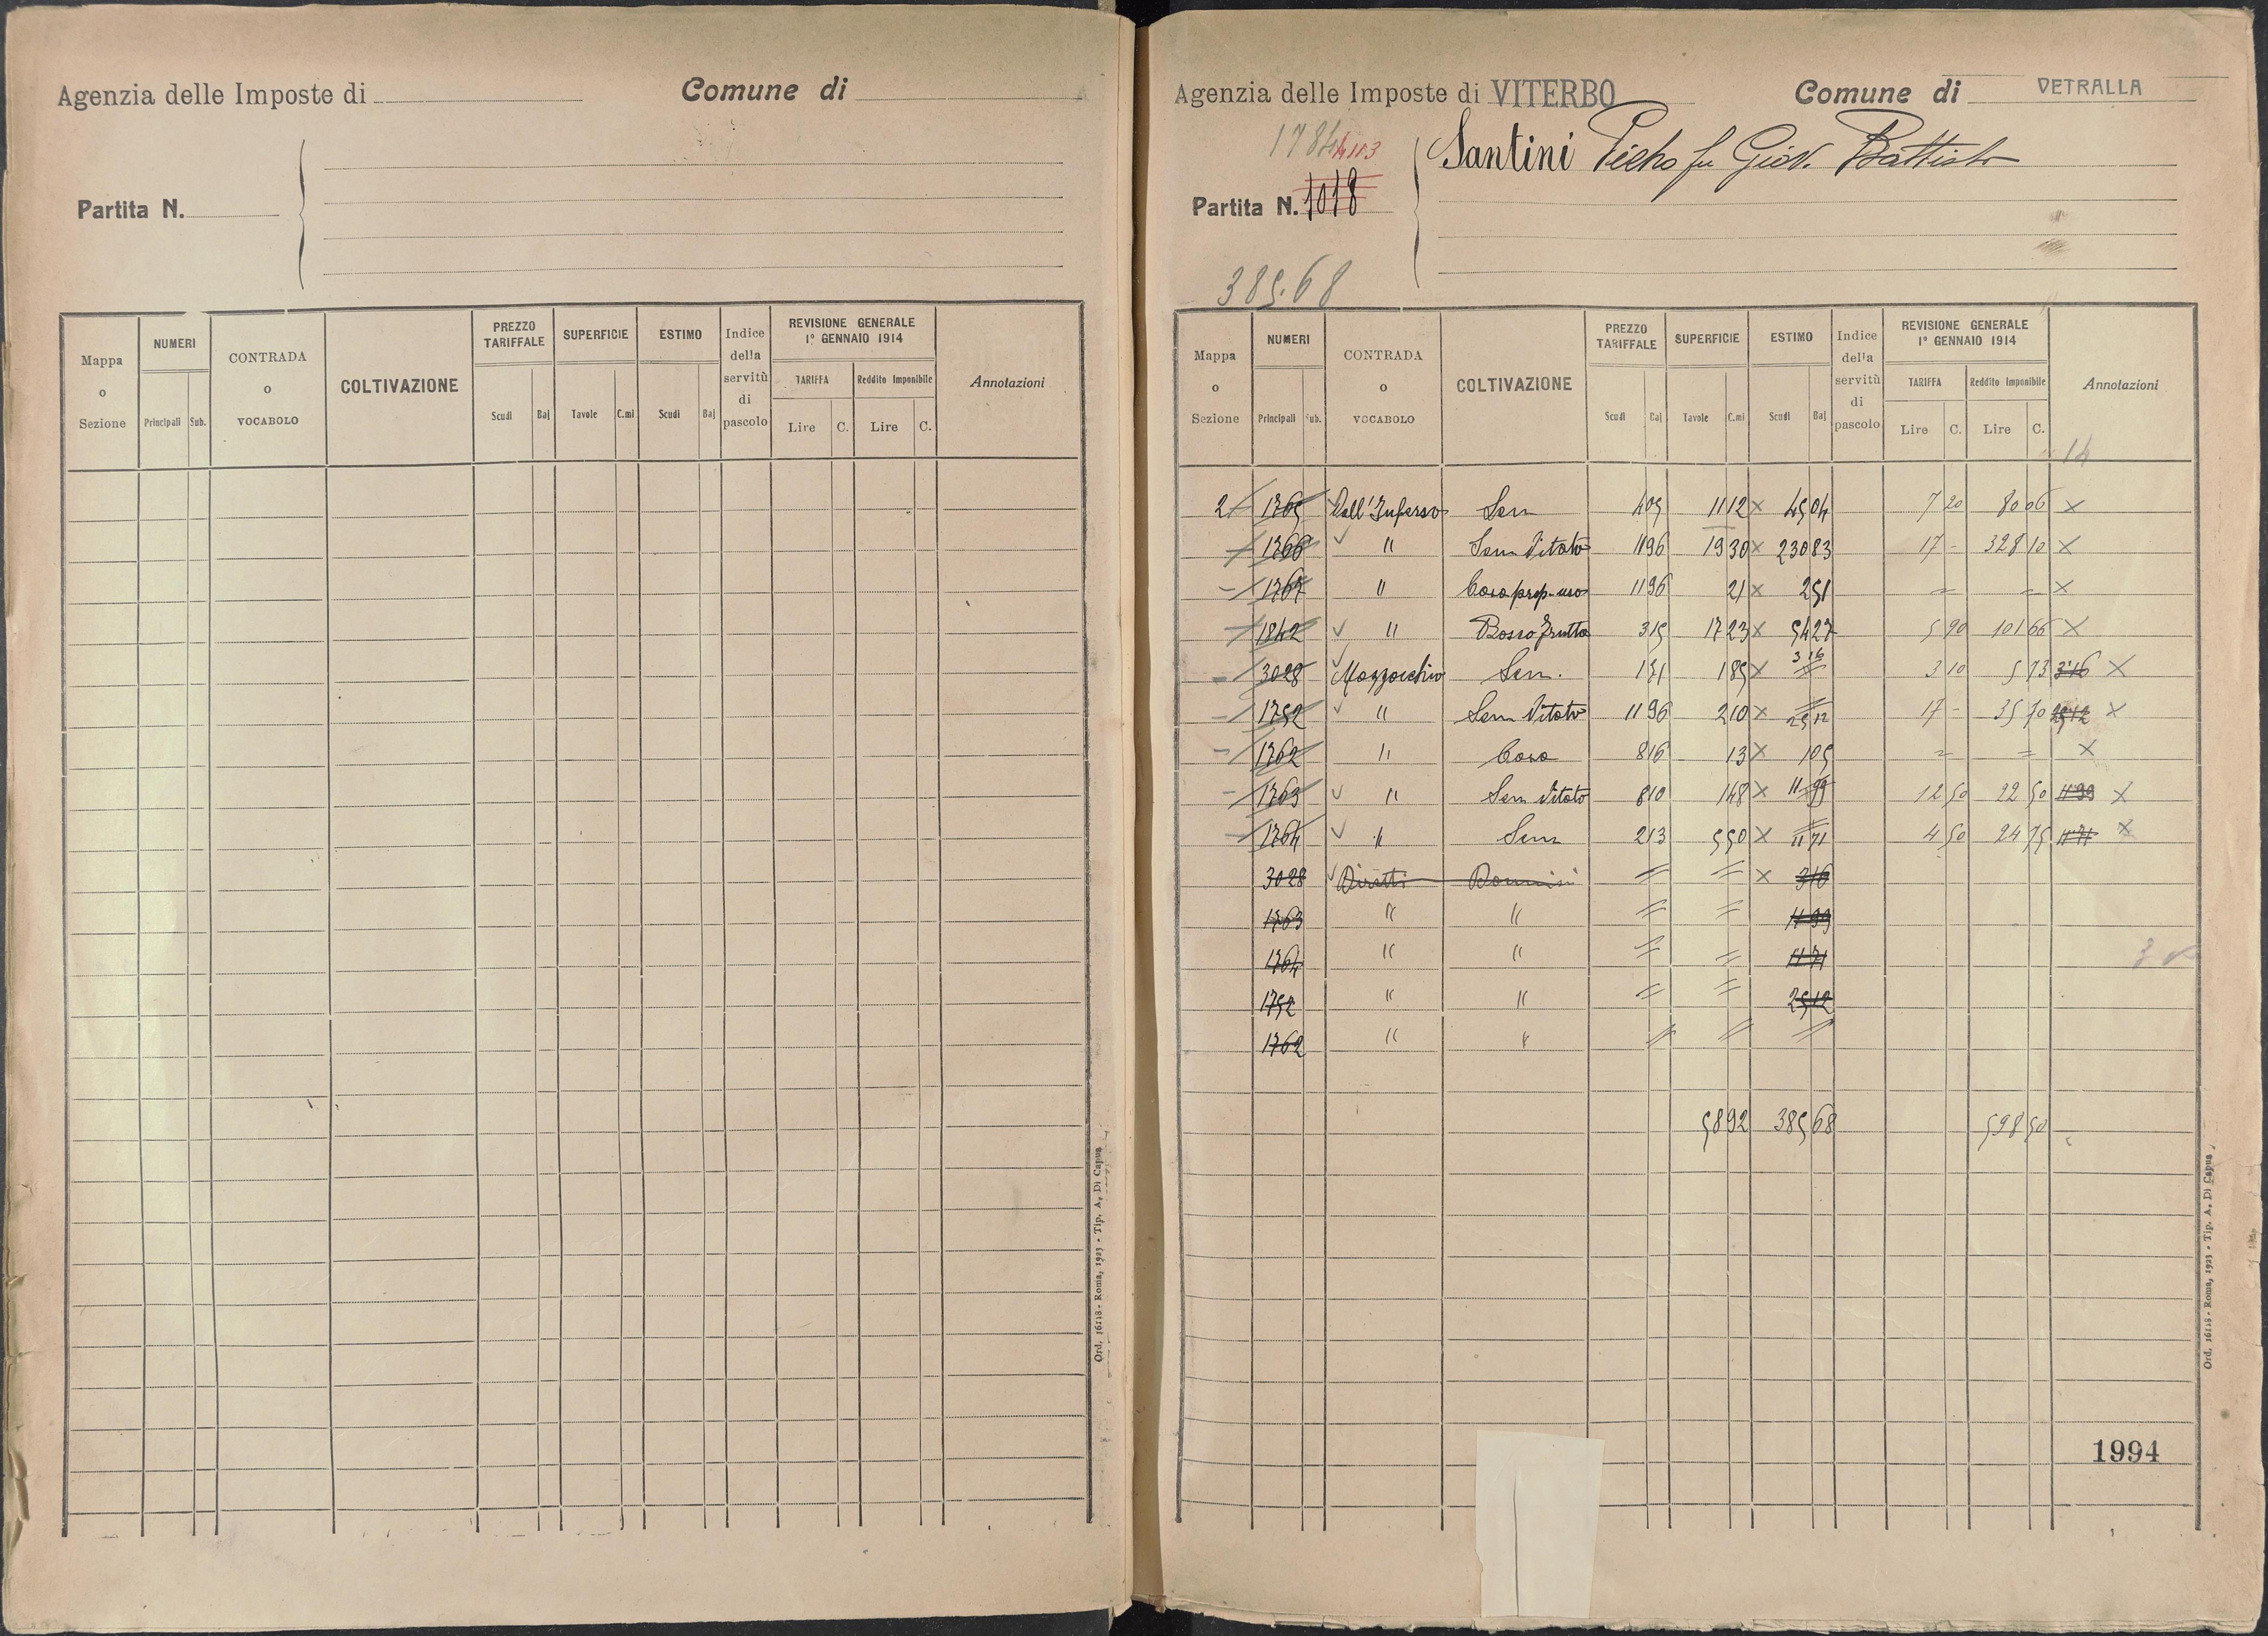 Agenzia delle Imposte di
Comune di
Partita N.
Mappa o Sezione
NUMERI
Principali Sub.
CONTRADA o VOCABOLO
COLTIVAZIONE
PREZZO TARIFFALE
Scudi Baj
SUPERFICIE
Tavole C.mi
ESTIMO
Scudi Baj
Indice della servitù di pascolo
REVISIONE GENERALE 1° GENNAIO 1914
TARIFFA Reddito Imponibile
Lire C. Lire C.
Annotazioni
Ord. 16118 - Roma, 1923 - Tip. A. Di Capua
Agenzia delle Imposte di VITERBO
Comune di VETRALLA
1784 4113
Partita N. 1018
Santini Pietro fu Giov. Battista
385.68
Mappa o Sezione
NUMERI
Principali Sub.
CONTRADA o VOCABOLO
COLTIVAZIONE
PREZZO TARIFFALE
Scudi Baj
SUPERFICIE
Tavole C.mi
ESTIMO
Scudi Baj
Indice della servitù di pascolo
REVISIONE GENERALE 1° GENNAIO 1914
TARIFFA Reddito Imponibile
Lire C. Lire C.
Annotazioni
14
2 1765 Vall'Inferno Sem 405 11 12 x 45 04 7 20 80 06 x
1766 " Sem Vitato 11 96 19 30 x 230 83 17 - 328 10 x
1767 " Casa prop. uso 11 96 21 x 2 51 = = x
1842 " Bosco frutto 315 17 23 x 54 27 5 90 101 66 x
3028 Mazzocchio Sem. 171 1 85 x 3 16 3 10 5 73 3 16 x
1752 " Sem Vitato 11 96 2 10 x 25 12 17 - 35 70 25 12 x
1762 " Casa 8 16 13 x 1 05 = = x
1763 " Sem Vitato 8 10 1 48 x 11 99 12 50 22 50 11 99 x
1764 " Sem 2 13 5 50 x 11 71 4 50 24 75 11 71 x
3028 Diretti Dominii = = x 3 16
1763 " " = = 11 99
1764 " " = = 11 71
1752 " " = = 25 12
1762 " " = = =
58 92 385 68 598 50
1994
Ord. 16118 - Roma, 1923 - Tip. A. Di Capua